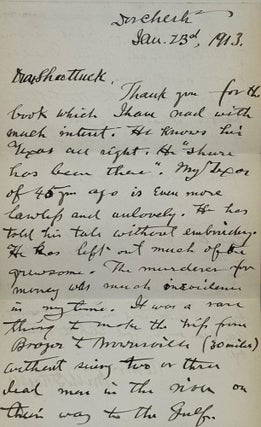 Dorchester
Jan. 23d, 1913.
Dear Shattuck.
Thank you for the
book which I have read with
much interest. He knows his
Texas all right. He "shure
has been there". My Texas
of 45 yrs ago is even more
lawless and unlovely. He has
told his tale without embroidery.
He has left out much of the
gruesome. The murderer for
money was much in evidence
in my time. It was a rare
thing to make the trip from
to (30 miles)
without seeing two or three
dead men in the river on
their way to the Gulf.